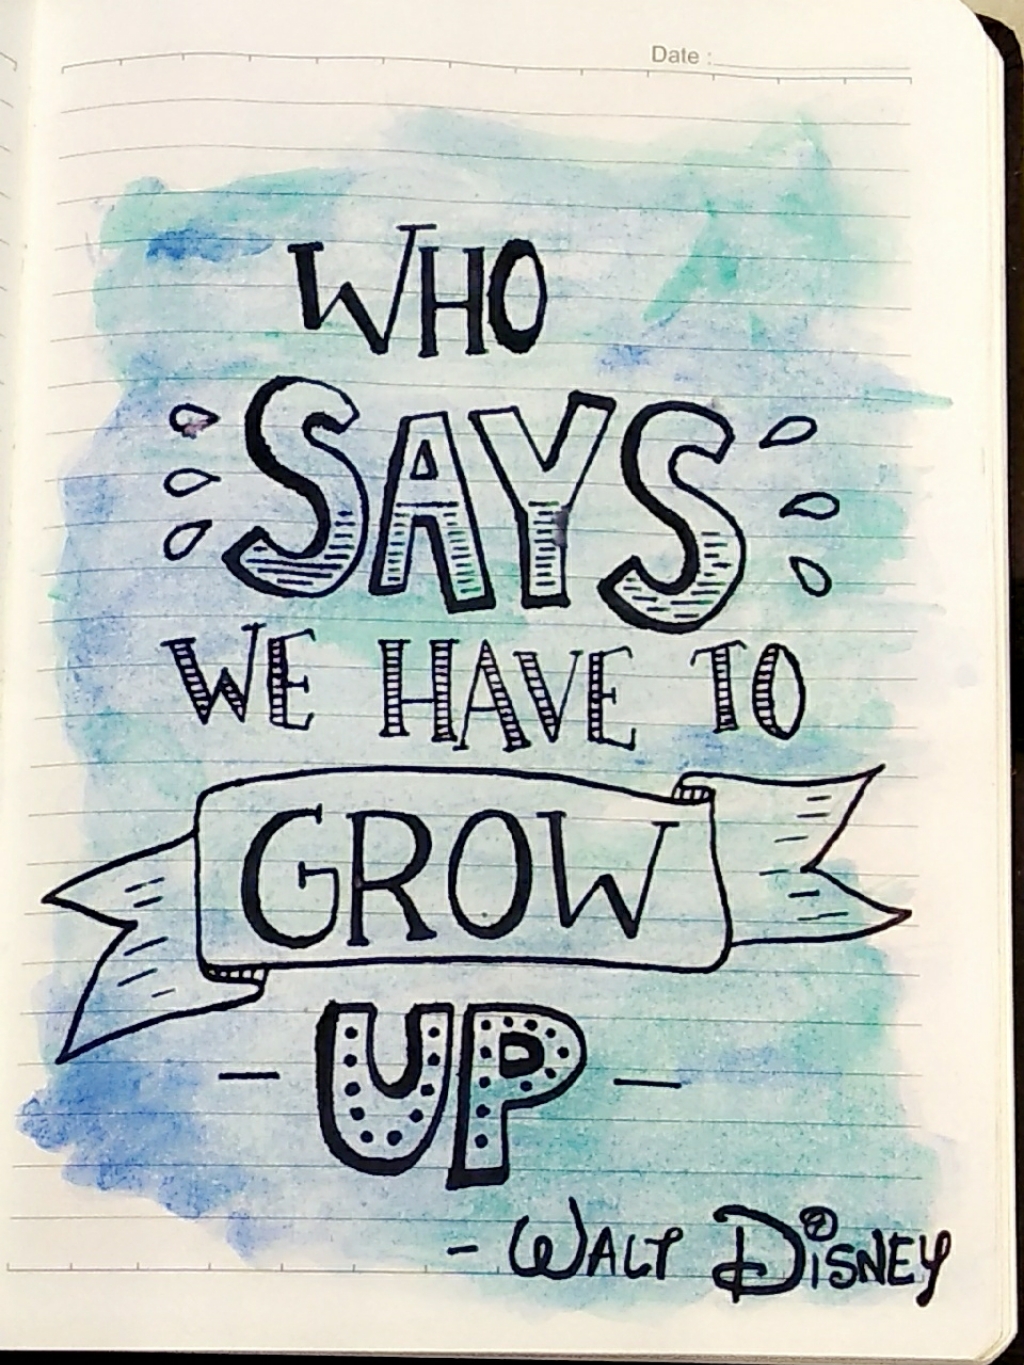 Date :
WHO
SAYS
WE HAVE TO
GROW
UP
- WALT DISNEY